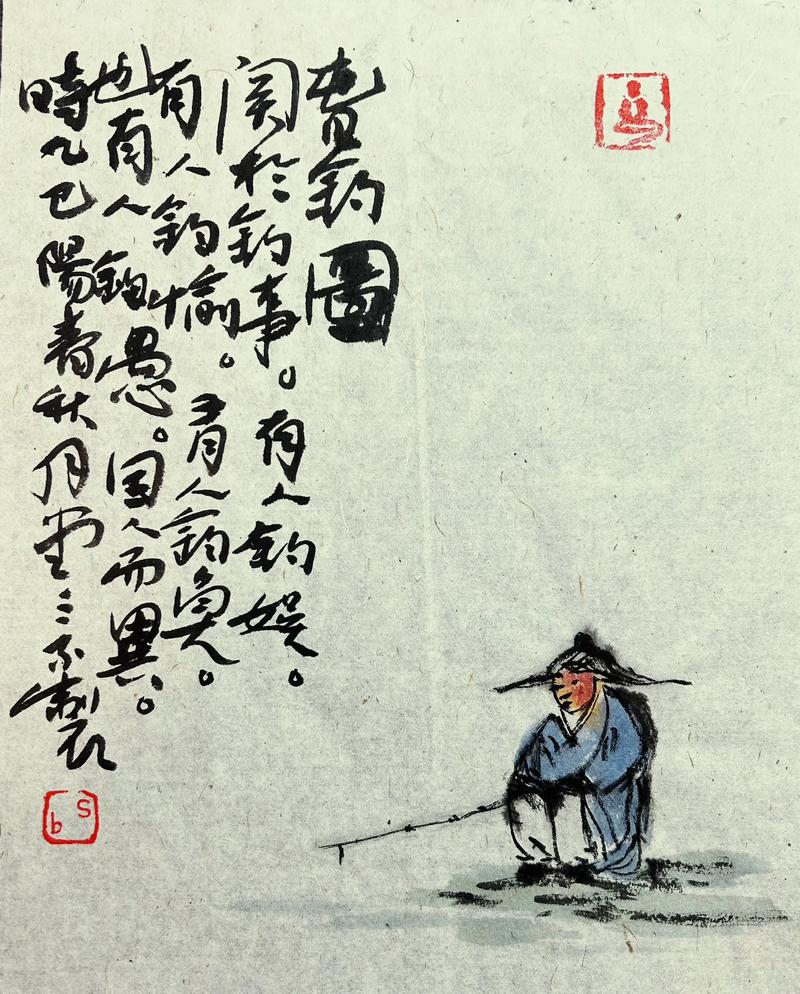 春釣圖
関於釣事。有人釣娱。
有人釣愉。有人釣魚。
也有人釣愚。因人而異。
時乙巳陽春秋月堂三不製
S
b